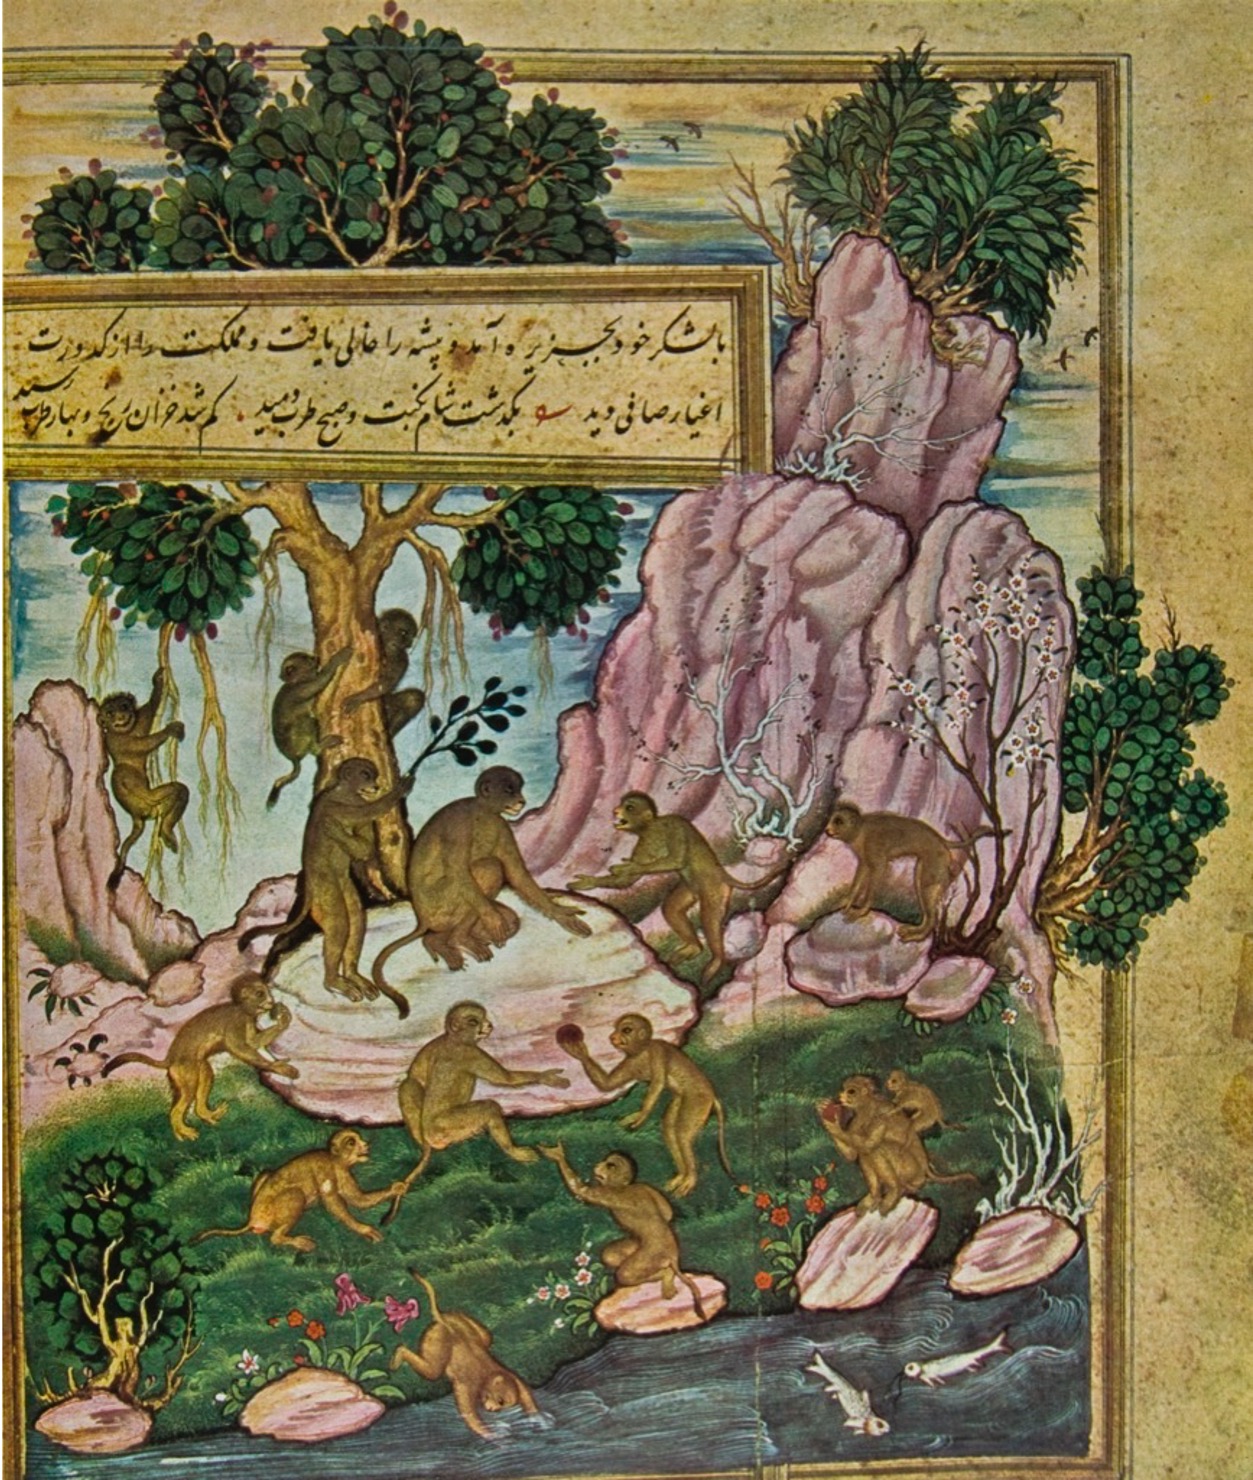 با لشکر خود بجزیره آمد و بیشه را خالی یافت و مملکت را از کدورت
اغیار صافی دید بگذشت شام نکبت و صبح طرب دمید کم شد خزان رنج و بهار طرب رسید